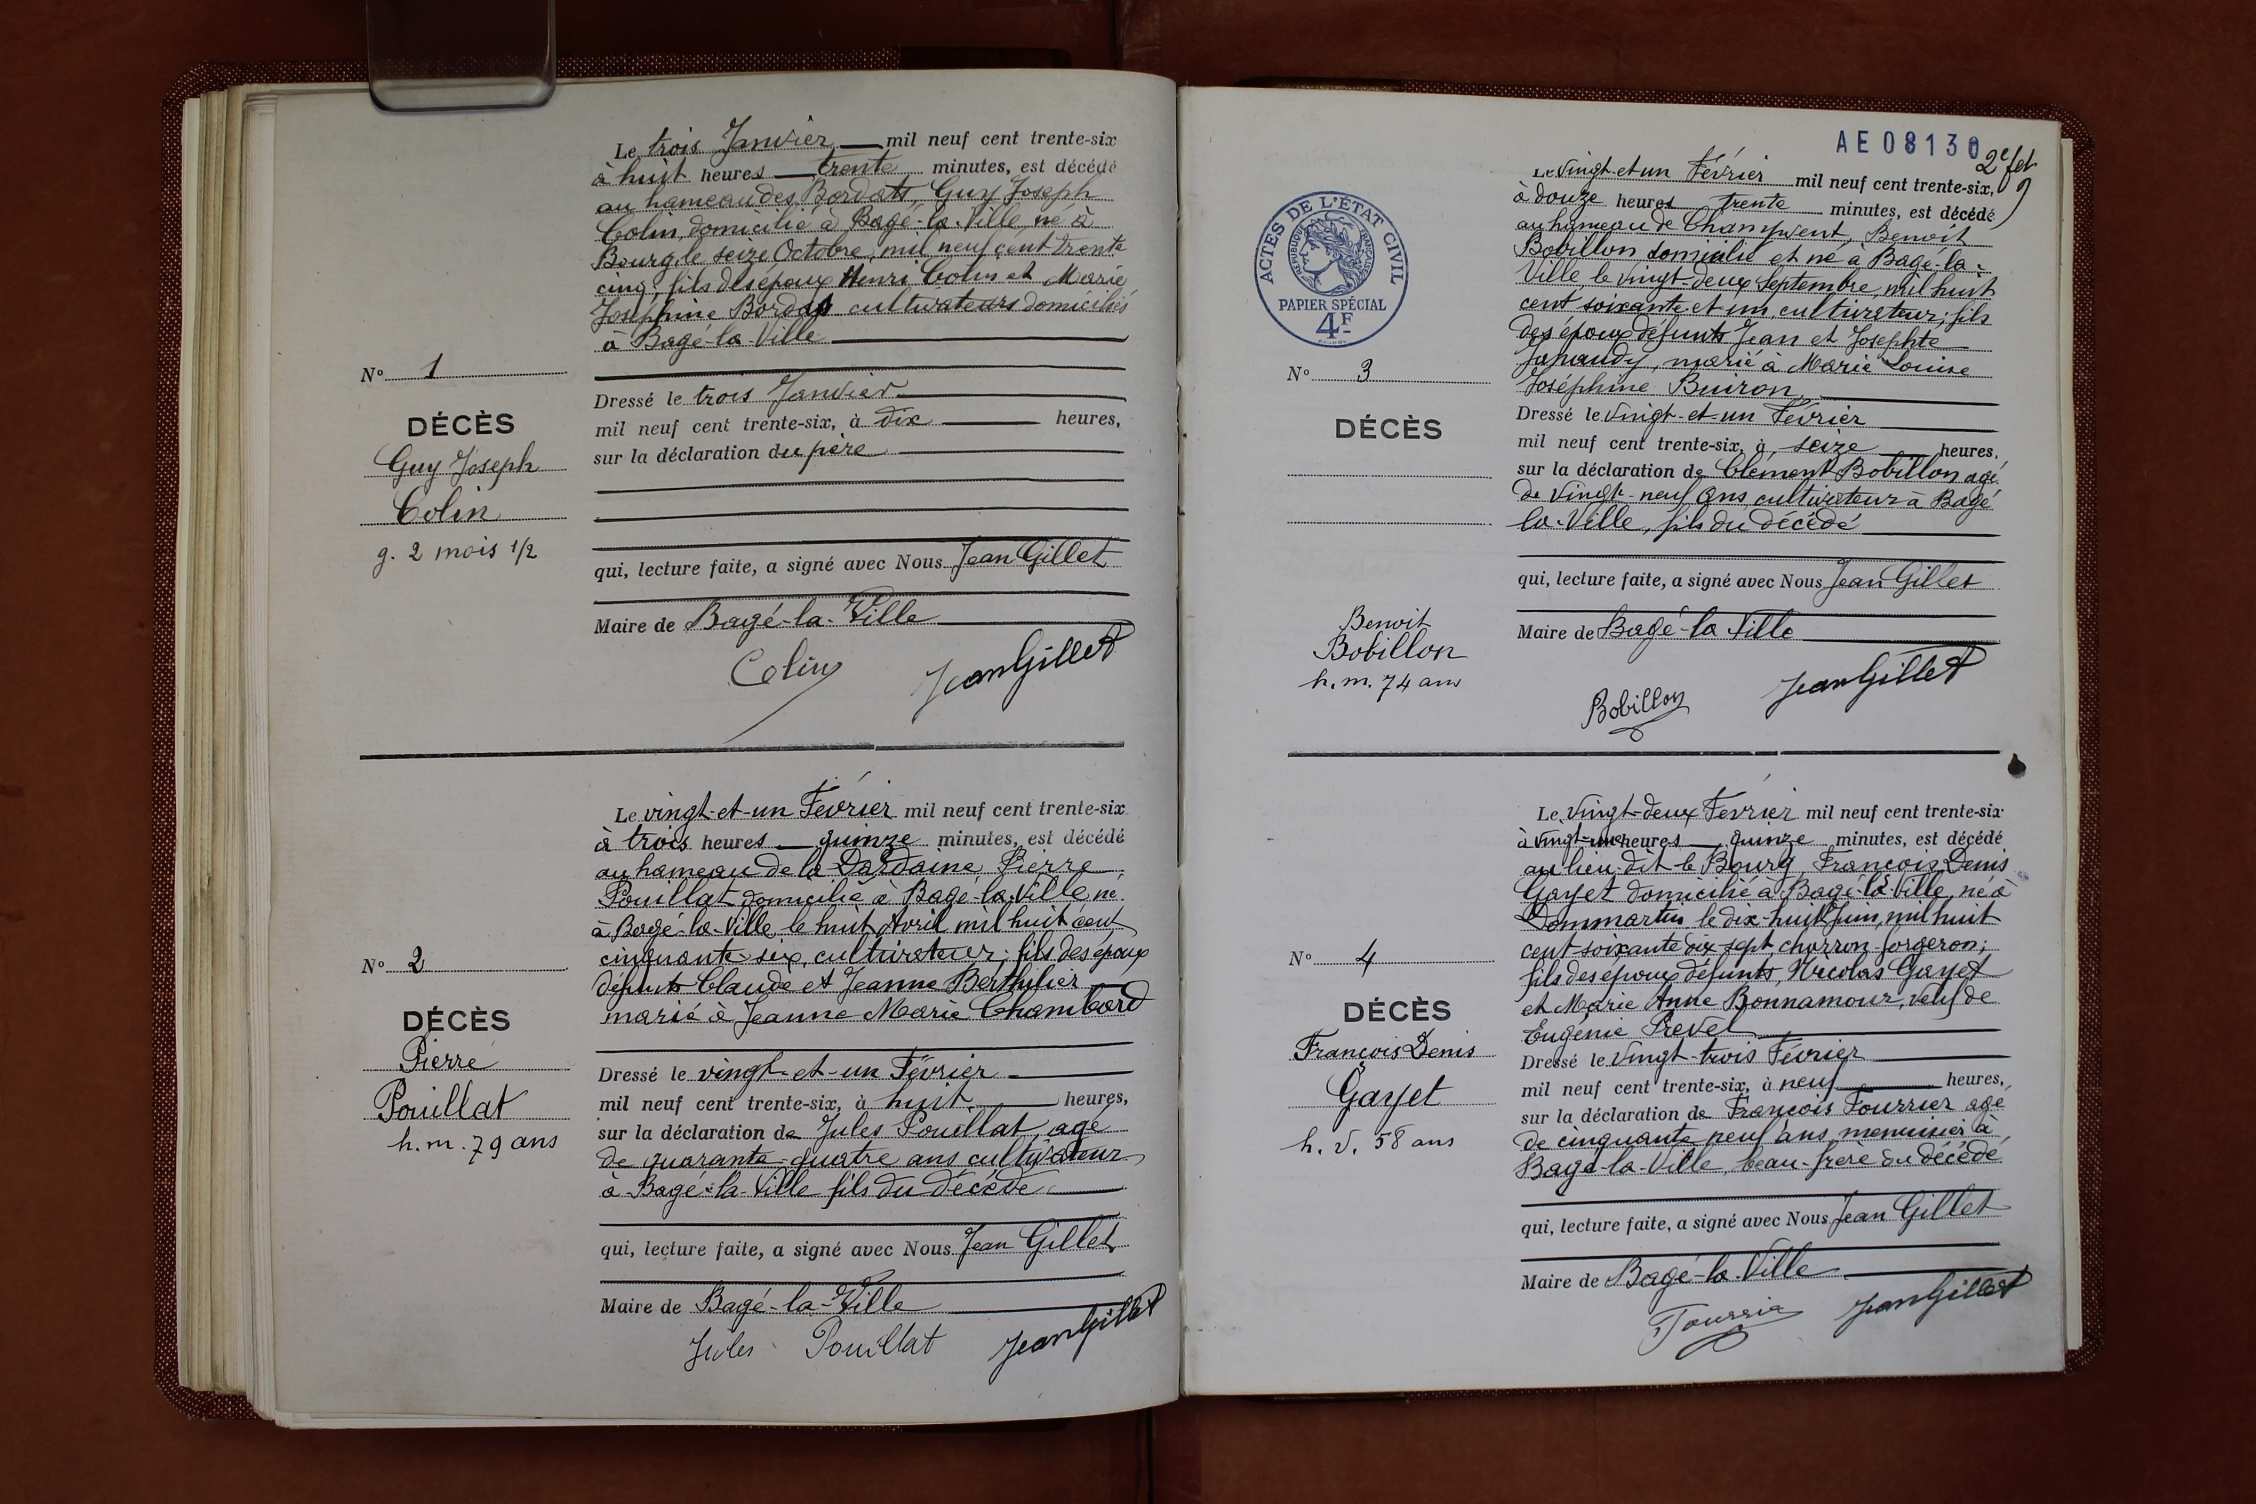 Le trois Janvier mil neuf cent trente-six
à huit heures trente minutes, est décédé
au hameau des Bordats, Guy Joseph
Colin, domicilié à Bagé-la-Ville, né à
Bourg, le seize Octobre, mil neuf cent trente
cinq, fils des époux Henri Colin et Marie
Joséphine cultivateurs domiciliés
à Bagé-la-Ville
N° 1
DÉCÈS
Guy Joseph
Colin
g. 2 mois 1/2
Dressé le trois Janvier
mil neuf cent trente-six, à dix heures,
sur la déclaration du père
qui, lecture faite, a signé avec Nous Jean Gillet
Maire de Bagé-la-Ville
Colin JeanGillet
Le vingt-et-un Février mil neuf cent trente-six
à trois heures quinze minutes, est décédé
au hameau de la Dardaine, Pierre
Pouillat domicilié à Bagé-la-Ville, né
à Bagé-la-Ville le huit Avril mil huit cent
cinquante-six, cultivateur; fils des époux
défunts Claude et Jeanne Berthilier
marié à Jeanne Marie Chambard
N° 2
DÉCÈS
Pierre
Pouillat
h. m. 79 ans
Dressé le vingt-et-un Février
mil neuf cent trente-six, à huit heures,
sur la déclaration de Jules Pouillat, agé
de quarante-quatre ans cultivateur
à Bagé-la-Ville fils du décédé
qui, lecture faite, a signé avec Nous Jean Gillet
Maire de Bagé-la-Ville
Jules Pouillat JeanGillet
AE08130
2e fet
ACTES DE L'ÉTAT CIVIL
RÉPUBLIQUE FRANÇAISE
PAPIER SPÉCIAL
4F
Le vingt-et-un Février mil neuf cent trente-six,
à douze heures trente minutes, est décédé
au hameau de Champvent, Benoit
Bobillon domicilié et né à Bagé-la-
Ville, le vingt-deux Septembre, mil huit
cent soixante et un, cultivateur; fils
des époux défunts Jean et Josephte
marié à Marie Louise
Joséphine Buiron
N° 3
DÉCÈS
Benoit
Bobillon
h. m. 74 ans
Dressé le vingt-et-un Février
mil neuf cent trente-six, à seize heures,
sur la déclaration de Clément Bobillon agé
de vingt-neuf ans, cultivateur à Bagé
la-Ville, fils du décédé
qui, lecture faite, a signé avec Nous Jean Gillet
Maire de Bagé-la-Ville
Bobillon JeanGillet
Le vingt-deux Février mil neuf cent trente-six
à vingt-une heures quinze minutes, est décédé
au lieu dit le Bourg, François Denis
Gayet domicilié à Bagé-la-Ville, né à
Dommartin le dix-huit Juin, mil huit
cent soixante dix sept, charron-forgeron;
fils des époux défunts, Nicolas Gayet
et Marie Anne Bonnamour, veuf de
Eugénie Prevel
N° 4
DÉCÈS
François Denis
Gayet
h. v. 58 ans
Dressé le vingt-trois Février
mil neuf cent trente-six, à neuf heures,
sur la déclaration de François Fourrier agé
de cinquante neuf ans menuisier à
Bagé-la-Ville, beau-frère du décédé
qui, lecture faite, a signé avec Nous Jean Gillet
Maire de Bagé-la-Ville
JeanGillet